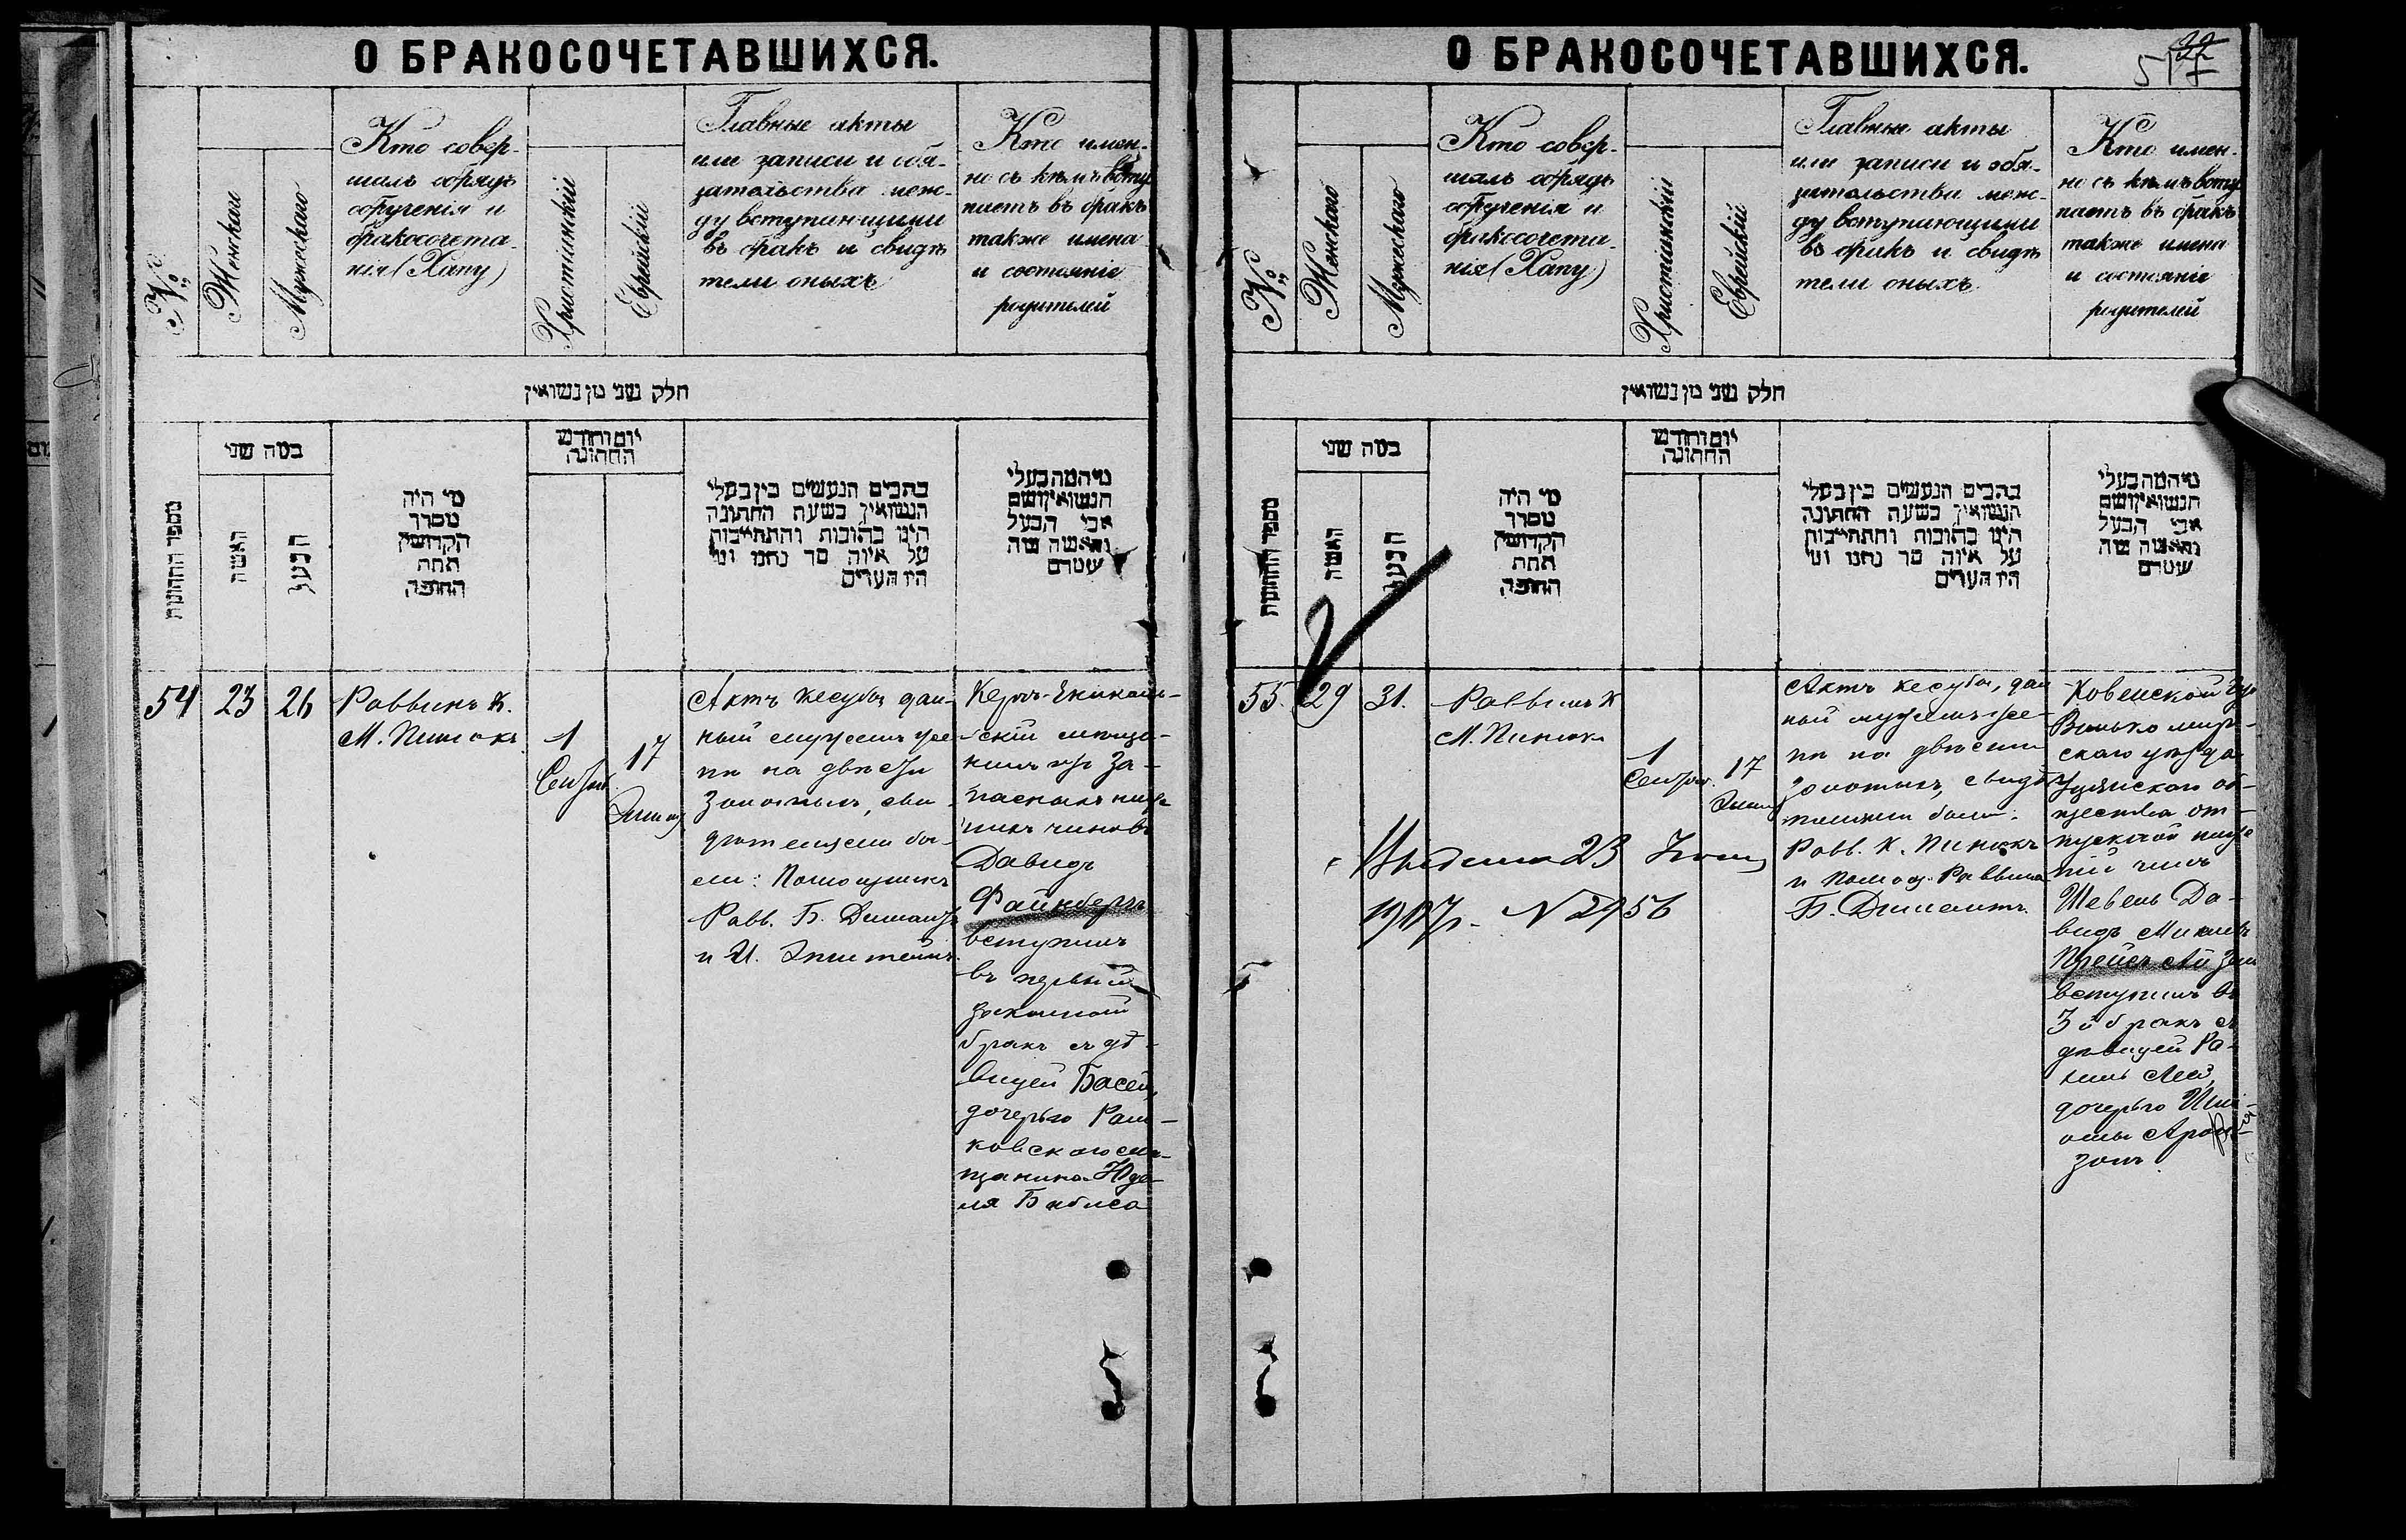 О БРАКОСОЧЕТАВШИХСЯ.
№
Женскаго
Мужескаго
Кто совер-
шалъ обрядъ
обрученія и
бракосочета-
нія (Хапу)
Христіанскій
Еврейскій
Главные акты
или записи и обя-
зательства меж-
ду вступающими
въ бракъ и свидѣ
тели оныхъ
Кто имен-
но съ кѣмъ всту
паетъ въ бракъ
также имена
и состояніе
родителей
חלק שני מן נשואין
מספר החתונות
כמה שני
האשה
הבעל
מי היה
מסדר
הקדושין
תחת
החופה
יום וחודש
החתונה
כתבים הנעשים בין בעלי
הנשואין בשעת החתונה
היינו כתובות והתחייבות
על איזה סך נתנו ומי
היו העדים
מי המה בעלי
הנשואין ושם
אבי הבעל
והאשה מה
54
23
26
Раввинъ К.
М. Пинюкъ
1
Сентяб.
17
Элиш
Актъ кесуба дан-
ный мужемъ же-
нѣ на двѣсти
золотыхъ, сви-
дѣтелями бы-
ли: Помощникъ
Равв. Б. Димантъ
и И. Эпштейнъ.
Керч-Еникаль-
скій мѣща-
нинъ изъ за-
пасныхъ ниж-
нихъ чиновъ
Давидъ
Файнбергъ
вступилъ
въ первый
законный
бракъ съ дѣ-
вицей Басей,
дочерью Раш-
ковского мѣ-
щанина Юде-
ля
О БРАКОСОЧЕТАВШИХСЯ.
№
Женскаго
Мужескаго
Кто совер-
шалъ обрядъ
обрученія и
бракосочета-
нія (Хапу)
Христіанскій
Еврейскій
Главные акты
или записи и обя-
зательства меж-
ду вступающими
въ бракъ и свидѣ
тели оныхъ
Кто имен-
но съ кѣмъ всту
паетъ въ бракъ
также имена
и состояніе
родителей
חלק שני מן נשואין
מספר החתונות
כמה שני
האשה
הבעל
מי היה
מסדר
הקדושין
תחת
החופה
יום וחודש
החתונה
כתבים הנעשים בין בעלי
הנשואין בשעת החתונה
היינו כתובות והתחייבות
על איזה סך נתנו ומי
היו העדים
מי המה בעלי
הנשואין ושם
אבי הבעל
והאשה מה
55.
29
31.
Раввинъ К
М. Пинюкъ
1
Сентяб.
17
Элиш
Актъ кесуба, дан
ный мужемъ же-
нѣ на двѣсти
золотыхъ, свидѣ
телями были:
Равв. К. Пинюкъ
и помощ. Раввина
Б. Димантъ.
Ковенской гу
Вилькомир-
скаго уѣзда
общества от-
пускной ниж
ній чинъ
Шевель Да-
видъ
вступилъ въ
3й бракъ съ
дѣвицей Ра-
хиль Леей,
дочерью
Арон
зонъ.
Выдана 23
№ 2956